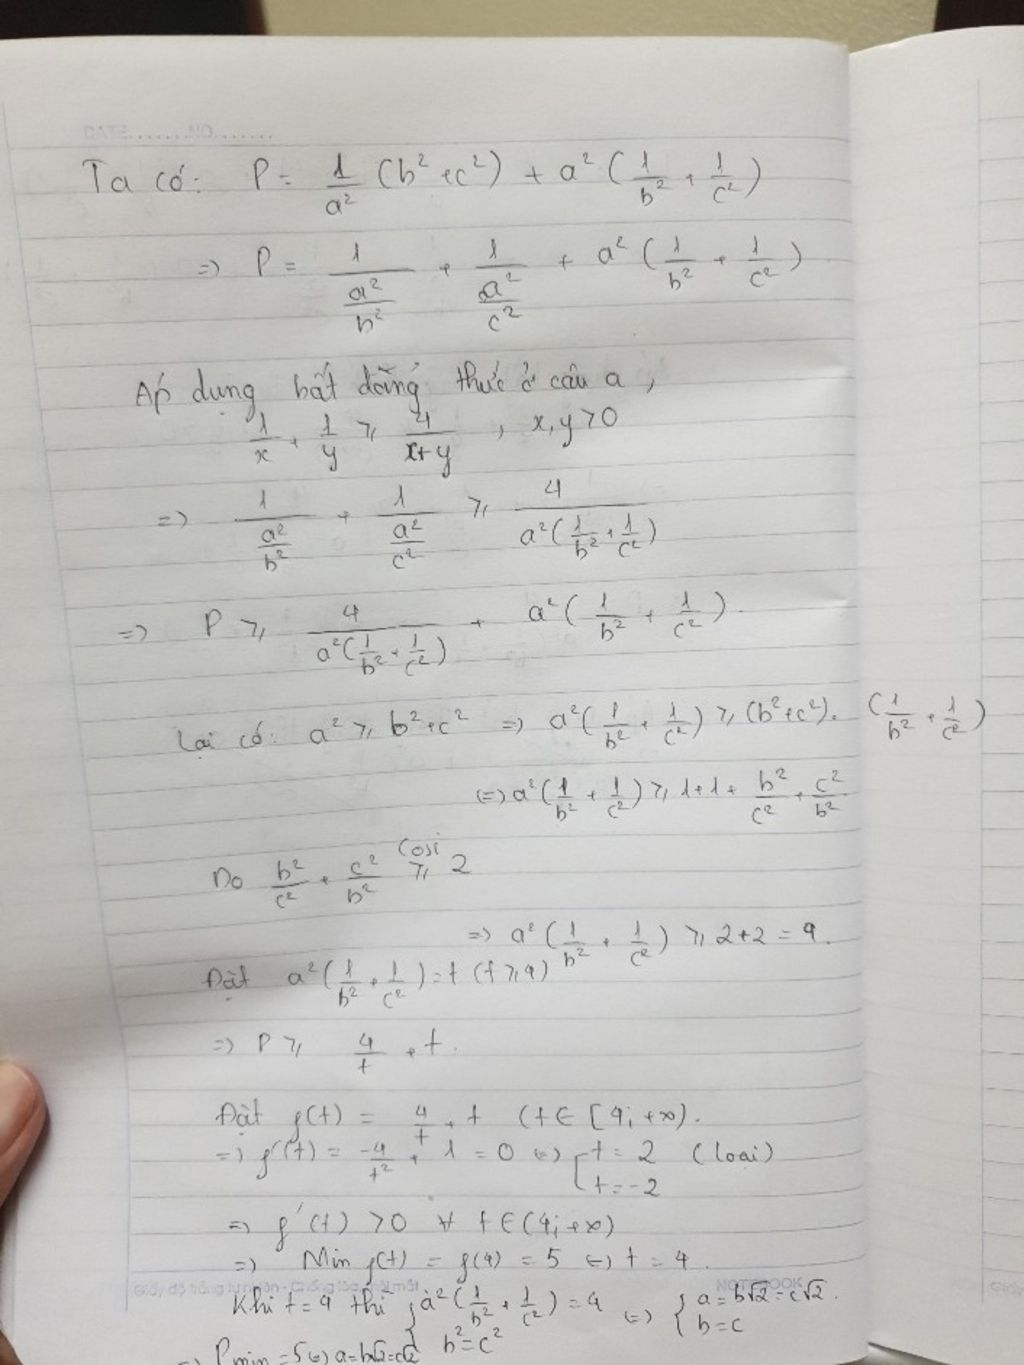 DATE.......NO.......
Ta có: P = 1/a² (b² + c²) + a² (1/b² + 1/c²)
=> P = 1/(a²/b²) + 1/(a²/c²) + a² (1/b² + 1/c²)
Áp dụng bất đẳng thức ở câu a,
1/x + 1/y ≥ 4/(x+y) , x,y > 0
=> 1/(a²/b²) + 1/(a²/c²) ≥ 4/(a²(1/b² + 1/c²))
=> P ≥ 4/(a²(1/b² + 1/c²)) + a² (1/b² + 1/c²).
Lại có: a² ≥ b² + c² => a²(1/b² + 1/c²) ≥ (b² + c²). (1/b² + 1/c²)
(=) a²(1/b² + 1/c²) ≥ 1+1+ b²/c² + c²/b²
Do b²/c² + c²/b² ≥ 2 Cosi
=> a² (1/b² + 1/c²) ≥ 2+2 = 4.
Đặt a²(1/b² + 1/c²) = t (t ≥ 4)
=> P ≥ 4/t + t.
Đặt f(t) = 4/t + t (t ∈ [4; +∞).
=> f'(t) = -4/t² + 1 = 0 (=) [ t = 2 (loại)
t = -2
=> f'(t) > 0 ∀ t ∈ (4; +∞)
=> Min f(t) = f(4) = 5 (=) t = 4.
NOTEBOOK
Khi t = 4 thì { a² (1/b² + 1/c²) = 4 (=) { a = b√2 = c√2.
b² = c² b = c
=> Pmin = 5 (=) a = b√2 = c√2